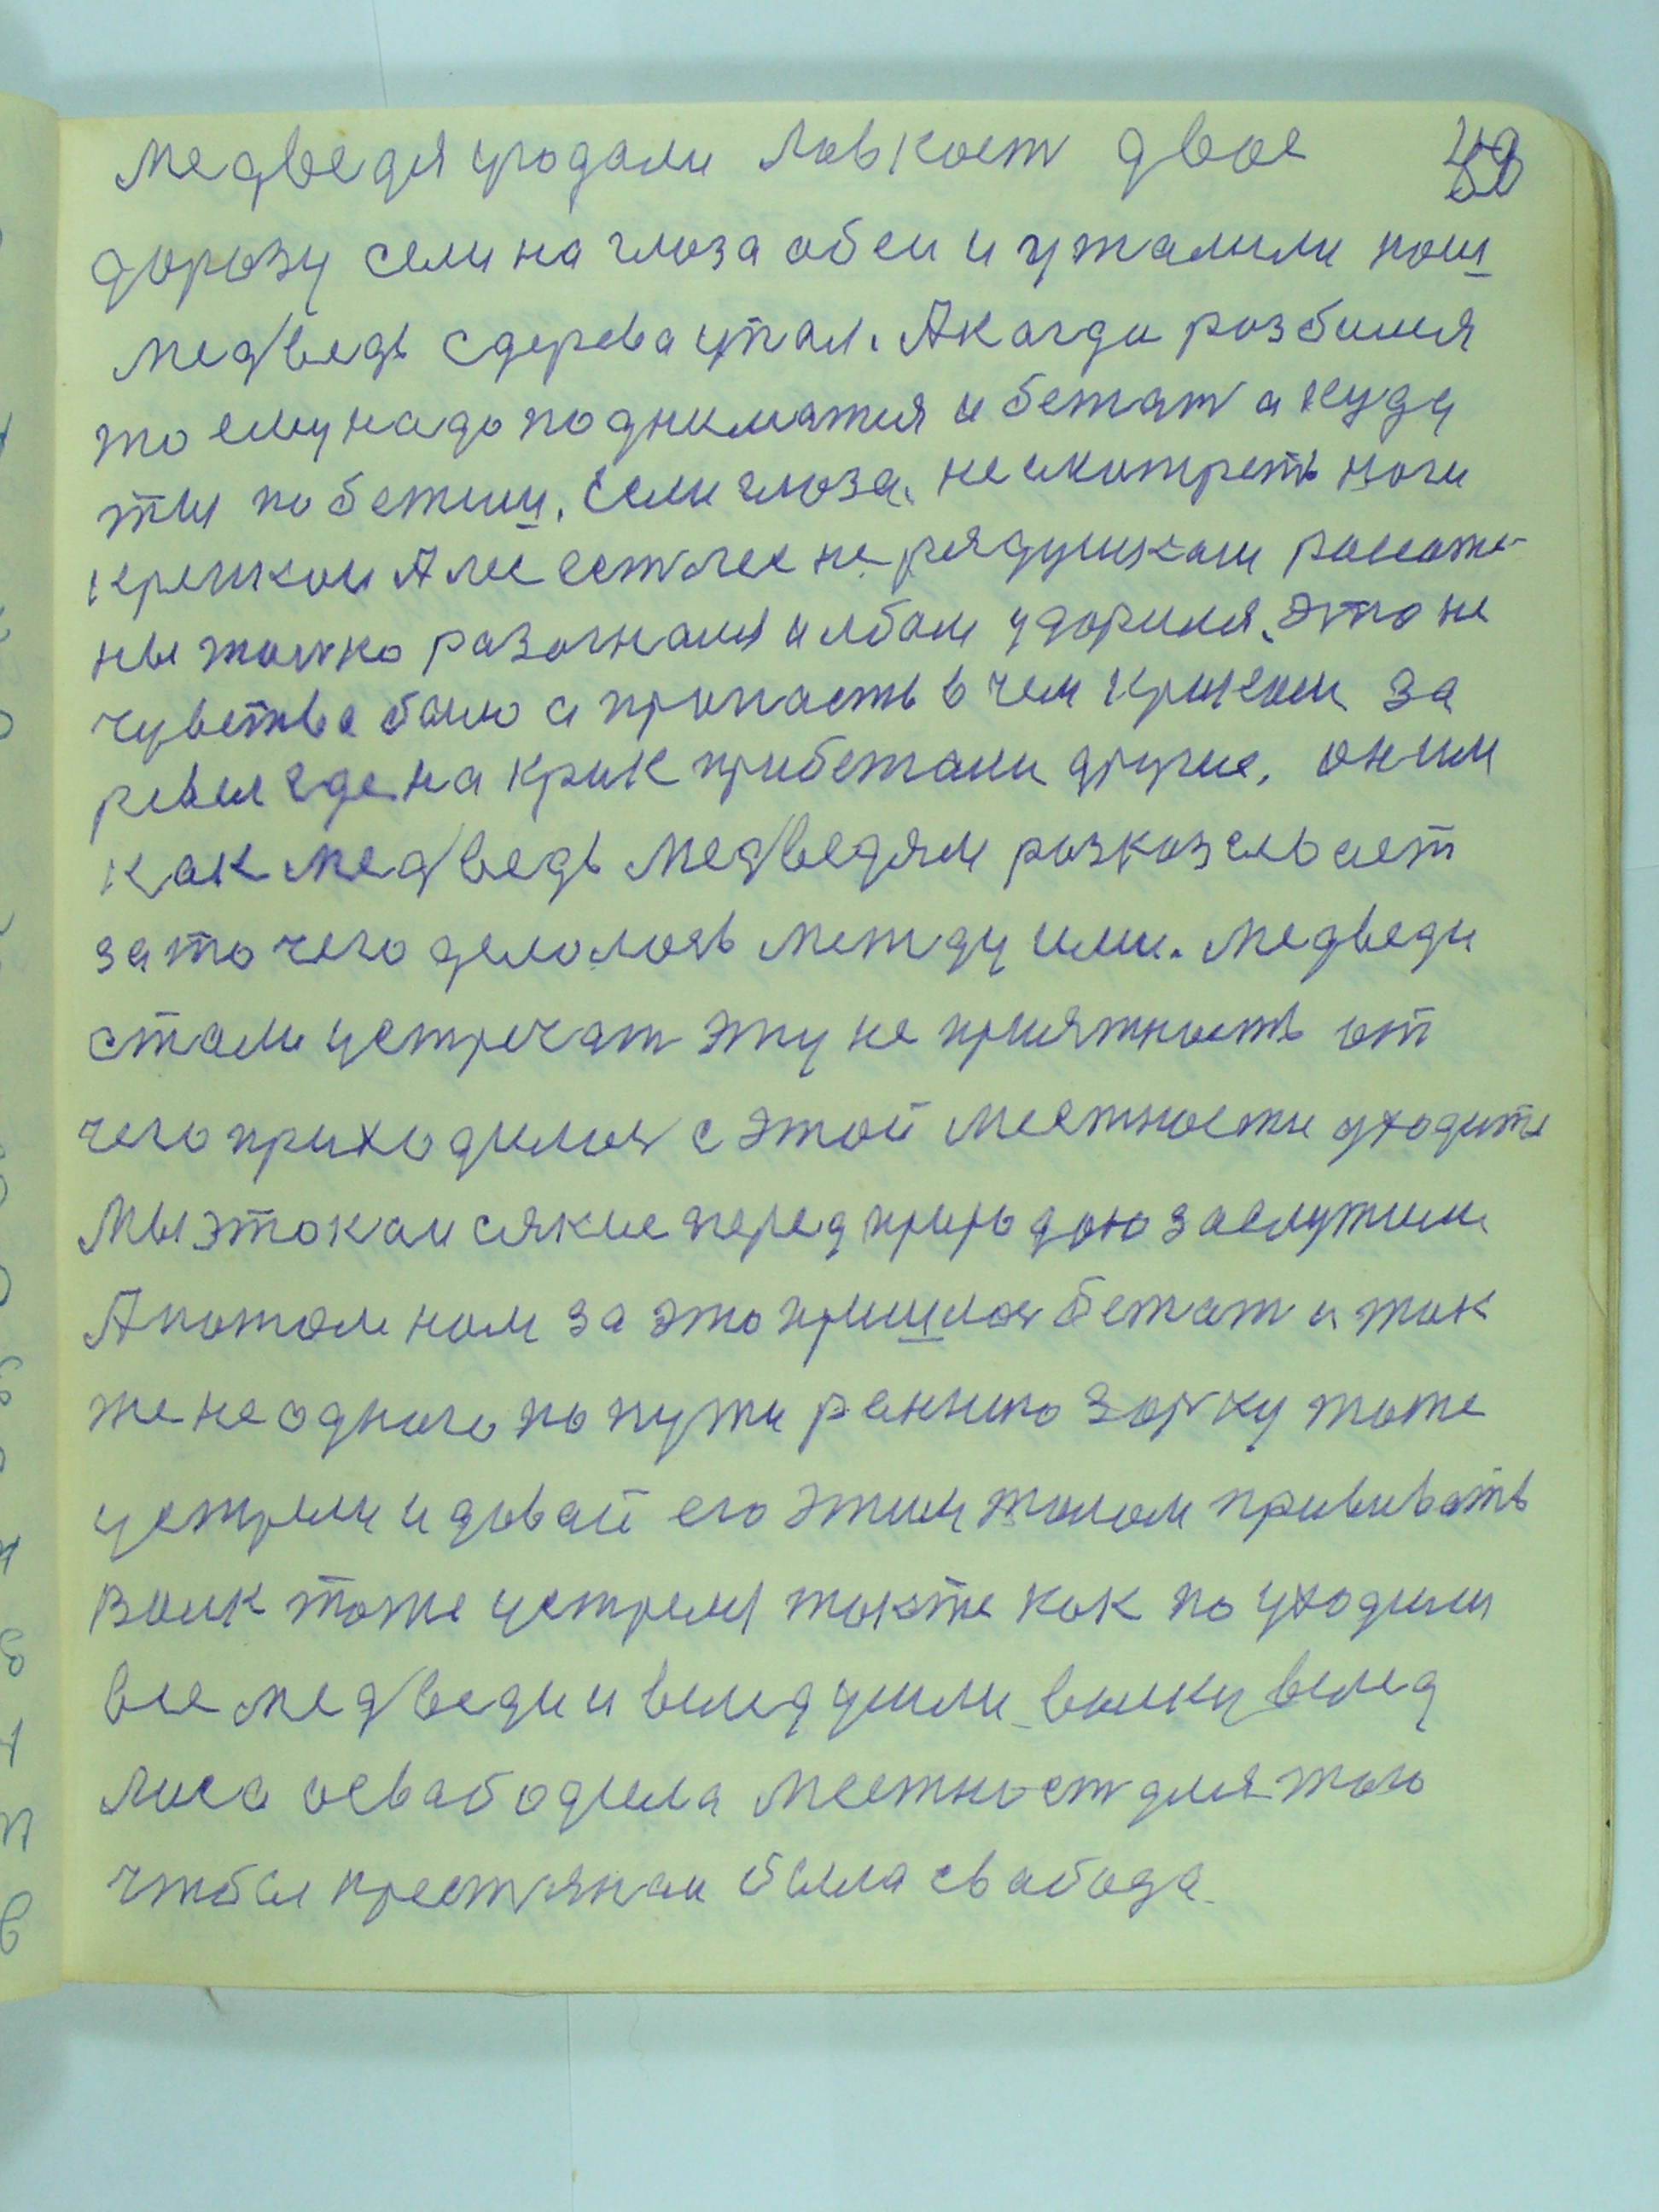 медведя угодали ловкост двое
доразу сели на глоза обеи и ужалили нош
медведь сдерева упал. А когда розбился
то ему надо подниматся и бежат а куду
ты побежиш, если глоза не смотреть ноги
крепкои А лес есть лес не рядушком росаже-
ны только разогнался и лбом ударился. Это не
чувства было а пропасть в чем криком за
ревел где на крик прибежали другие, он им
как медведь медведям розказывает
за то чего делолось между ими. Медведи
стали устречат эту не приятность от
чего приходилося с этой местности уходить
Мы это каи сякие перед природою заслужили
А потом ном за это пришлося бежат и ток
же не одного по пути раннию зорку тоже
устрели и довай его этим жолом прививать
Волк тоже устрелся токже как по уходили
все медведи и вслед ушли волку вслед
лиса освабодила местност для того
чтобы крестянам была свабода